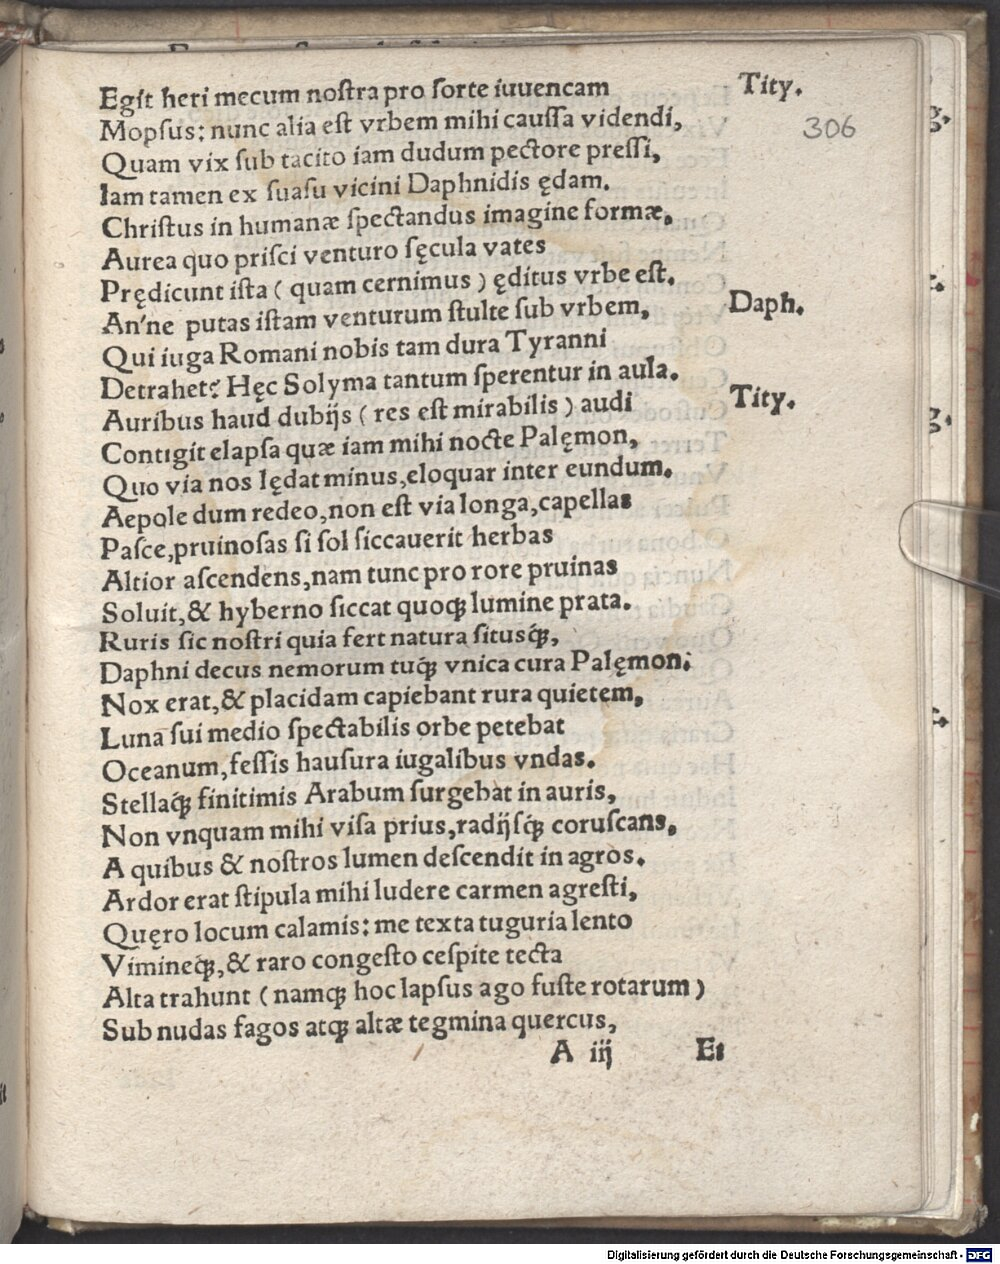 Egit heri mecum noſtra pro ſorte iuuencam Tity.
Mopſus: nunc alia eſt vrbem mihi cauſſa videndi, 306
Quam vix ſub tacito iam dudum pectore preſſi,
Iam tamen ex ſuaſu vicini Daphnidis ędam.
Chriſtus in humanæ ſpectandus imagine formæ,
Aurea quo priſci venturo ſęcula vates
Prędicunt iſta ( quam cernimus ) ęditus vrbe eſt.
An'ne putas iſtam venturum ſtulte ſub vrbem, Daph.
Qui iuga Romani nobis tam dura Tyranni
Detrahet? Hęc Solyma tantum ſperentur in aula.
Auribus haud dubijs ( res eſt mirabilis ) audi Tity.
Contigit elapſa quæ iam mihi nocte Palęmon,
Quo via nos lędat minus, eloquar inter eundum.
Aepole dum redeo, non eſt via longa, capellas
Paſce, pruinoſas ſi ſol ſiccauerit herbas
Altior aſcendens, nam tunc pro rore pruinas
Soluit, & hyberno ſiccat quoqꝫ lumine prata.
Ruris ſic noſtri quia fert natura ſitusq́ꝫ,
Daphni decus nemorum tuq́ꝫ vnica cura Palęmon.
Nox erat, & placidam capiebant rura quietem,
Luna ſui medio ſpectabilis orbe petebat
Oceanum, feſſis hauſura iugalibus vndas.
Stellaq́ꝫ finitimis Arabum ſurgebat in auris,
Non vnquam mihi viſa prius, radijſq́ꝫ coruſcans,
A quibus & noſtros lumen deſcendit in agros.
Ardor erat ſtipula mihi ludere carmen agreſti,
Quęro locum calamis: me texta tuguria lento
Vimineq́ꝫ, & raro congeſto ceſpite tecta
Alta trahunt ( namqꝫ hoc lapſus ago fuſte rotarum )
Sub nudas fagos atqꝫ altæ tegmina quercus,
A iij Et
Digitalisierung gefördert durch die Deutsche Forschungsgemeinschaft - DFG